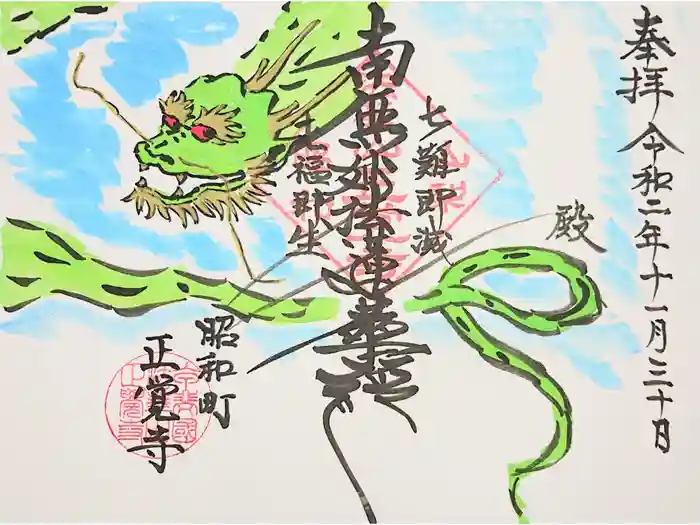 奉拝 令和二年十一月三十日
殿
七難即滅
南無妙法蓮華経
七福即生
昭和町
正覚寺